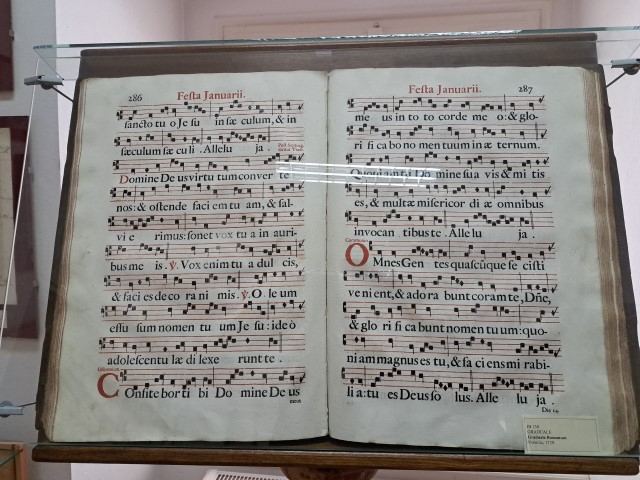 286
Festa Januarii.
sancto tu o Je su in sæ culum, & in
sæculum sæ cu li . Allelu ja .
Domine De us virtu tum conver te
nos: & ostende faci em tu am, & sal-
vi e rimus: sonet vox tu a in auri-
bus me is. ℣. Vox enim tu a dul cis,
& faci es de co ra ni mis. ℣. O le um
effu sum nomen tu um Je su: ideò
adolescentu læ di lexe runt te .
COnfitebor ti bi Do mine De us
meus
Festa Januarii.
287
me us in to to corde me o: & glo-
ri fi ca bo no men tuum in æ ternum.
Quoni am tu Do mine sua vis & mi tis
es, & multæ misericor di æ omnibus
invocan tibus te . Alle lu ja .
OMnes Gen tes quascũque fe cisti
ve nient, & ado ra bunt coram te, Dñe,
& glo ri fi ca bunt nomen tu um: quo-
niam magnus es tu, & fa ci ens mi rabi-
li a: tu es Deus so lus. Alle lu ja .
Die 14
GRADUALE
Graduale Romanum